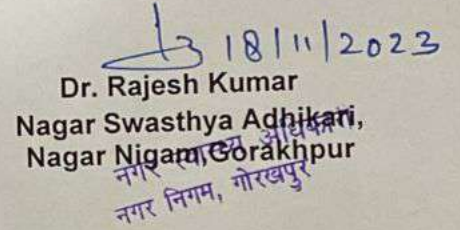 18/11/2023
Dr. Rajesh Kumar
Nagar Swasthya Adhikari,
Nagar Nigam, Gorakhpur
नगर स्वास्थ्य अधिकारी
नगर निगम, गोरखपुर